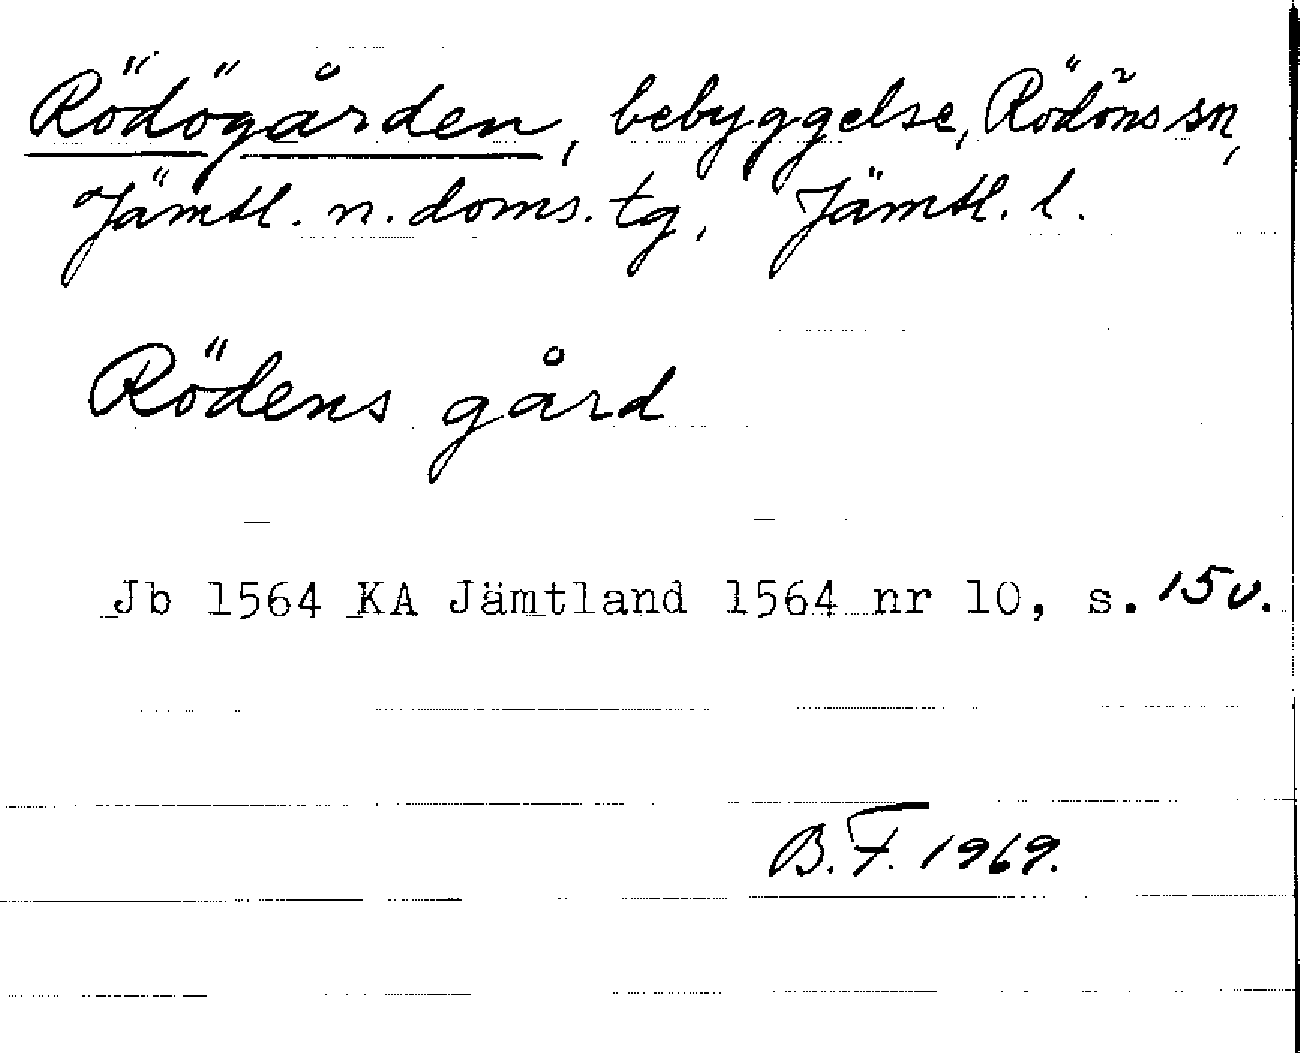 Rödögården, bebyggelse, Rödöns sn,
Jämtl. n. doms. tg, Jämtl. l.
Rödens gård
Jb 1564 KA Jämtland 1564 nr 10, s. 15v.
B.F. 1969.